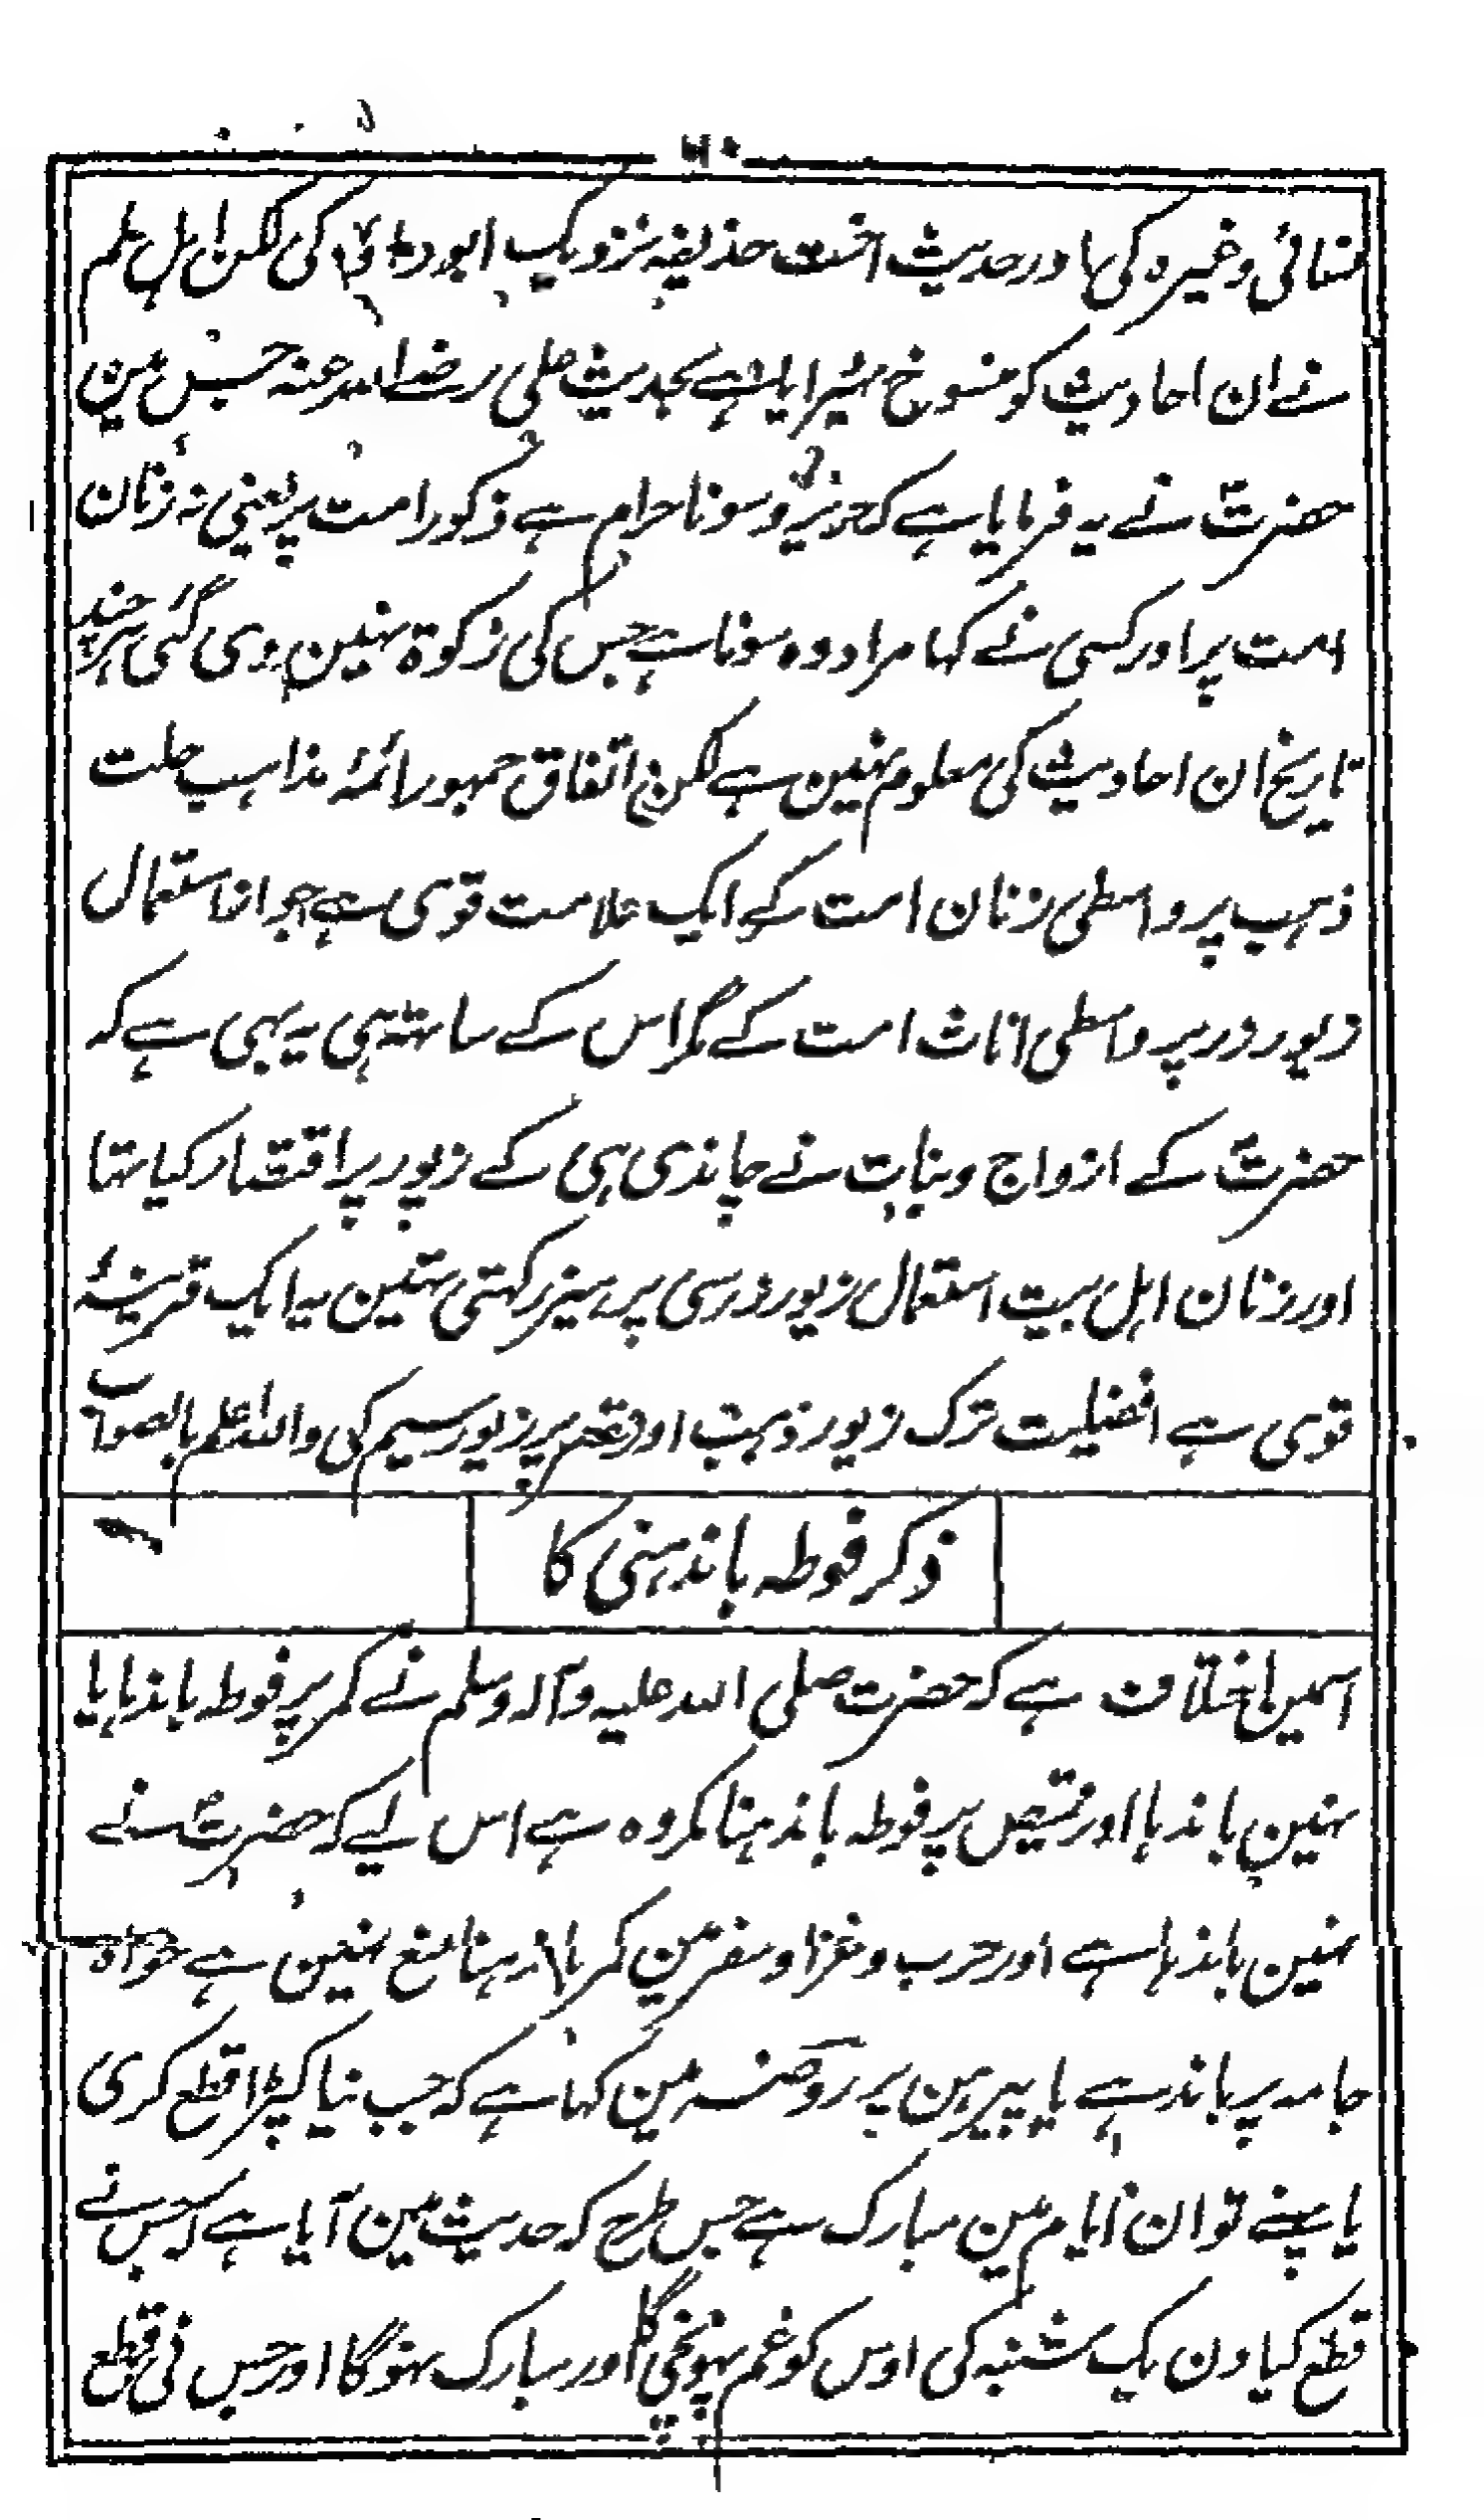 ۶۰
نسائی وغیرہ کی ہا ورحدیث اخت حذیفہ نزدیک ابوداؤد کی لکن اہل علم
نے ان احادیث کو منسوخ ٹہیرایا ہے بحدیث علی رضے اللہ عنہ جسں مین
حضرتؐ نے یہ فرمایا ہے کہ حریر و سونا حرام ہے ذکور امت پر یعنی نہ زنان
امت پر اور کسی نے کہا مراد وہ سونا ہے جس کی زکوۃ نہین دی گئی ہرچند
تاریخ ان احادیث کی معلوم نہین ہے لکن اتفاق جمہور ائمہٗ مذاہب حلت
ذہب پر واسطی زنان امت کے ایک علامت قوی ہے جواز استعمال
زیور زر پر واسطی اناث امت کے مگر اس کے ساتہہ ہی یہ بہی ہے کہ
حضرتؐ کے ازواج و بنات نے چاندی ہی کے زیور پر اقتصار کیا تہا
اور زنان اہل بیت استعمال زیور زر سی پرہیز رکہتی تہین یہ ایک قرینہٗ
قوی ہے افضلیت ترک زیور ذہب اور تحتم پر زیور سیم کی واللہ اعلم بالصواب
ذکر فوطہ باندہنی کا
اسمین اختلاف ہے کہ حضرت صلی اللہ علیہ وآلہ وسلم نے کمر پر فوطہ باندہا یا
نہین باندہا اور قمیص پر فوطہ باندہنا مکروہ ہے اس لیے کہ حضرتؐ نے
نہین باندہا ہے اور حرب و غزا و سفر مین کمر باندہنا منع نہین ہے خواہ
جامہ پر باندہے یا پیرہن پر روضہ مین کہا ہے کہ جب نیا کپڑا قطع کری
یا پہنے تو ان ایام مین مبارک ہے جس طرح کہ حدیث مین آیا ہے کہ جس نے
قطع کیا دن یک شنبہ کی اوس کو غم پہونچیگا اور مبارک نہوگا اور جس نی قطع